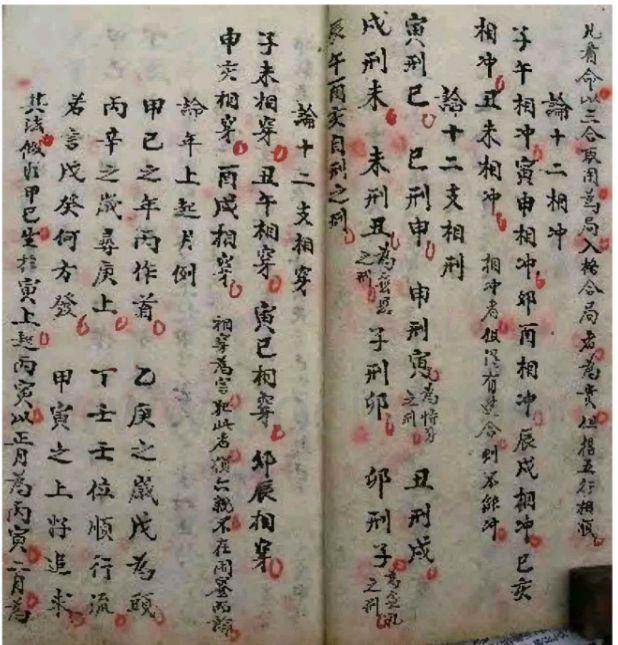 凡看命以三合取用為局入格合局者為貴但揩五行相順
論十二相冲
子午相冲寅申相冲卯酉相冲辰戌相冲巳亥
相冲丑未相冲 相冲者但沒有 合則不能冲
論十二支相刑
寅刑巳 巳刑申 申刑寅為恃勢之刑 丑刑戌
戌刑未 未刑丑為 之刑 子刑卯 卯刑子為無礼之刑
辰午酉亥自刑之刑
論十二支相穿
子未相穿丑午相穿寅巳相穿卯辰相穿
申亥相穿酉戌相穿 相穿為害犯此者 六親不在
論年上起月例
甲己之年丙作首 乙庚之歲戊為頭
丙辛之歲尋庚上 丁壬壬位順行流
若言戊癸何方發 甲寅之上好追求
其法假如甲己生於寅上起丙寅以正月為丙寅二月為